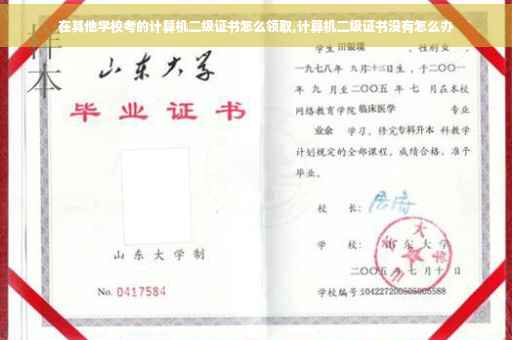 在其他学校考的计算机二级证书怎么领取,计算机二级证书没有怎么办
样本
山东大学
毕业证书
山东大学制
No. 0417584
学生 田银瑞 , 性别 女 ,
一九七八年 九月十三日生 , 于二〇〇一
年 九 月至二〇〇五 年 七 月在本校
网络教育学院 临床医学 专业
业余 学习, 修完 专科升本 科教学
计划规定的全部课程, 成绩合格, 准予
毕业。
校 长:
学 校: 山东大学
二〇〇五年七月十日
学校编号: